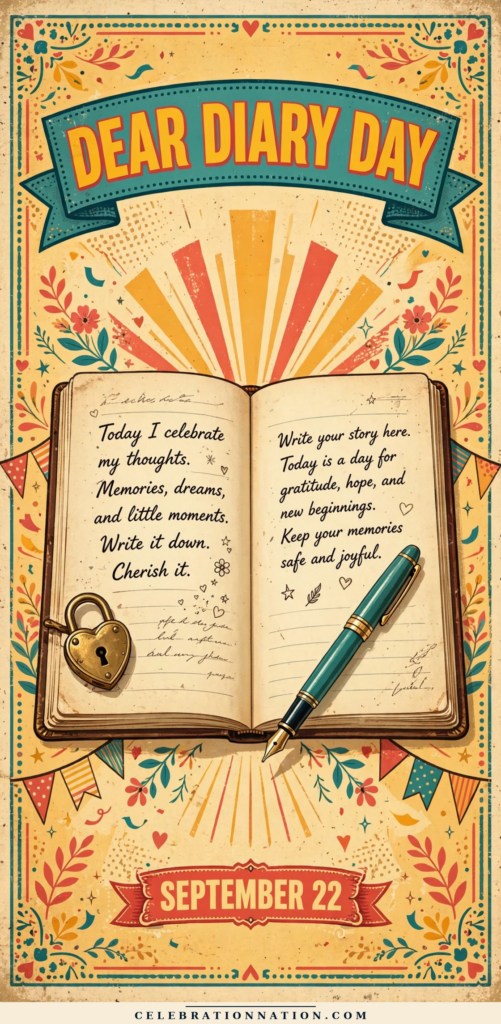 DEAR DIARY DAY
Today I celebrate
my thoughts.
Memories, dreams,
and little moments.
Write it down.
Cherish it.
Write your story here.
Today is a day for
gratitude, hope, and
new beginnings.
Keep your memories
safe and joyful.
SEPTEMBER 22
CELEBRATIONNATION.COM